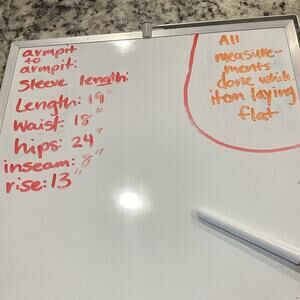 armpit
to
armpit:
Sleeve length:
Length: 19"
Waist: 18"
hips: 24"
inseam: 8"
rise: 13"
All
measure-
ments
done while
item laying
flat